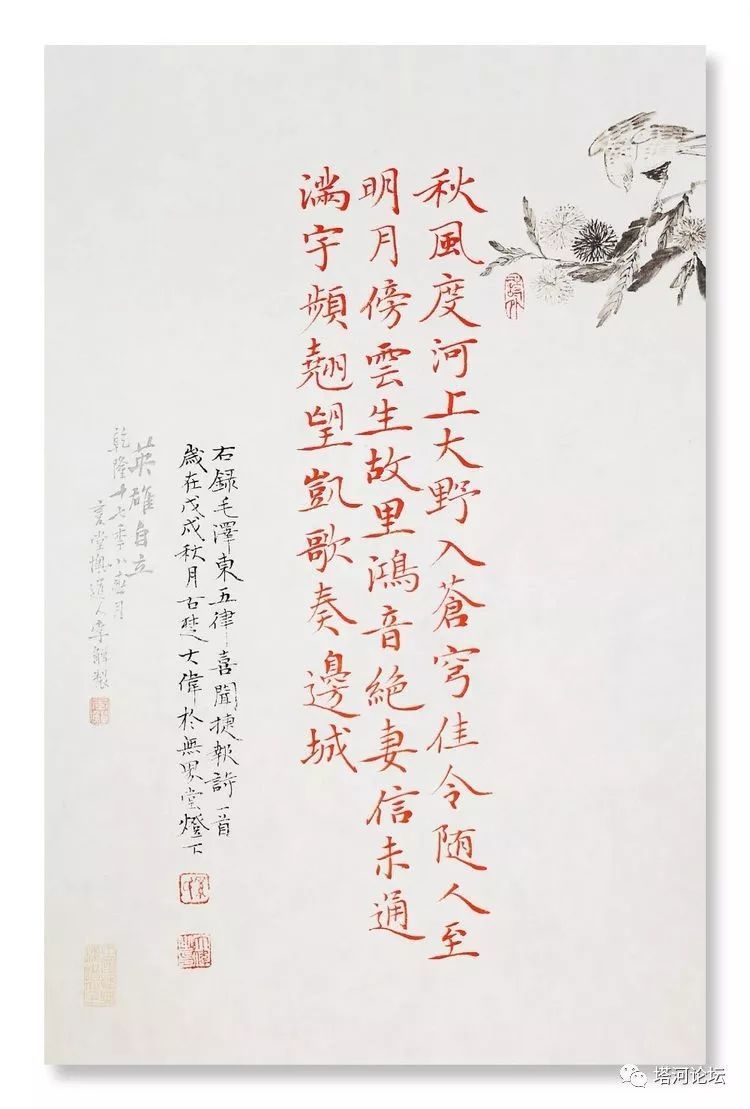 秋風度河上大野入蒼穹佳令随人至
明月傍雲生故里鴻音絶妻信未通
滿宇頻翹望凱歌奏邊城
右録毛澤東五律·喜聞捷報詩一首
歲在戊戌秋月古楚大偉於無畏堂燈下
英雄自立
乾隆十七季小月
堂懊道人李製
塔河论坛